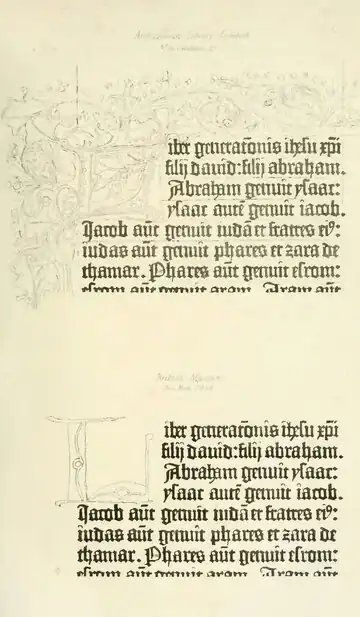 iber generatōnis ihesu xp̄i
filij dauid: filij abraham.
Abraham genuit ysaac:
ysaac autē genuit iacob.
Jacob aūt genuit iudā et fratres ei⁹:
iudas aūt genuit phares et zara de
thamar. Phares aūt genuit esrom:
esrom aūt genuit aram. Aram aūt
British Museum
iber generatōnis ihesu xp̄i
filij dauid: filij abraham.
Abraham genuit ysaac:
ysaac autē genuit iacob.
Jacob aūt genuit iudā et fratres ei⁹:
iudas aūt genuit phares et zara de
thamar. Phares aūt genuit esrom:
esrom aūt genuit aram. Aram aūt